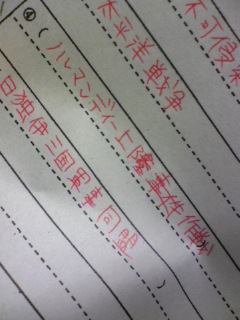 不可侵
太平洋戦争
④(ノルマンディー上陸事件
日独伊三国軍事同盟)